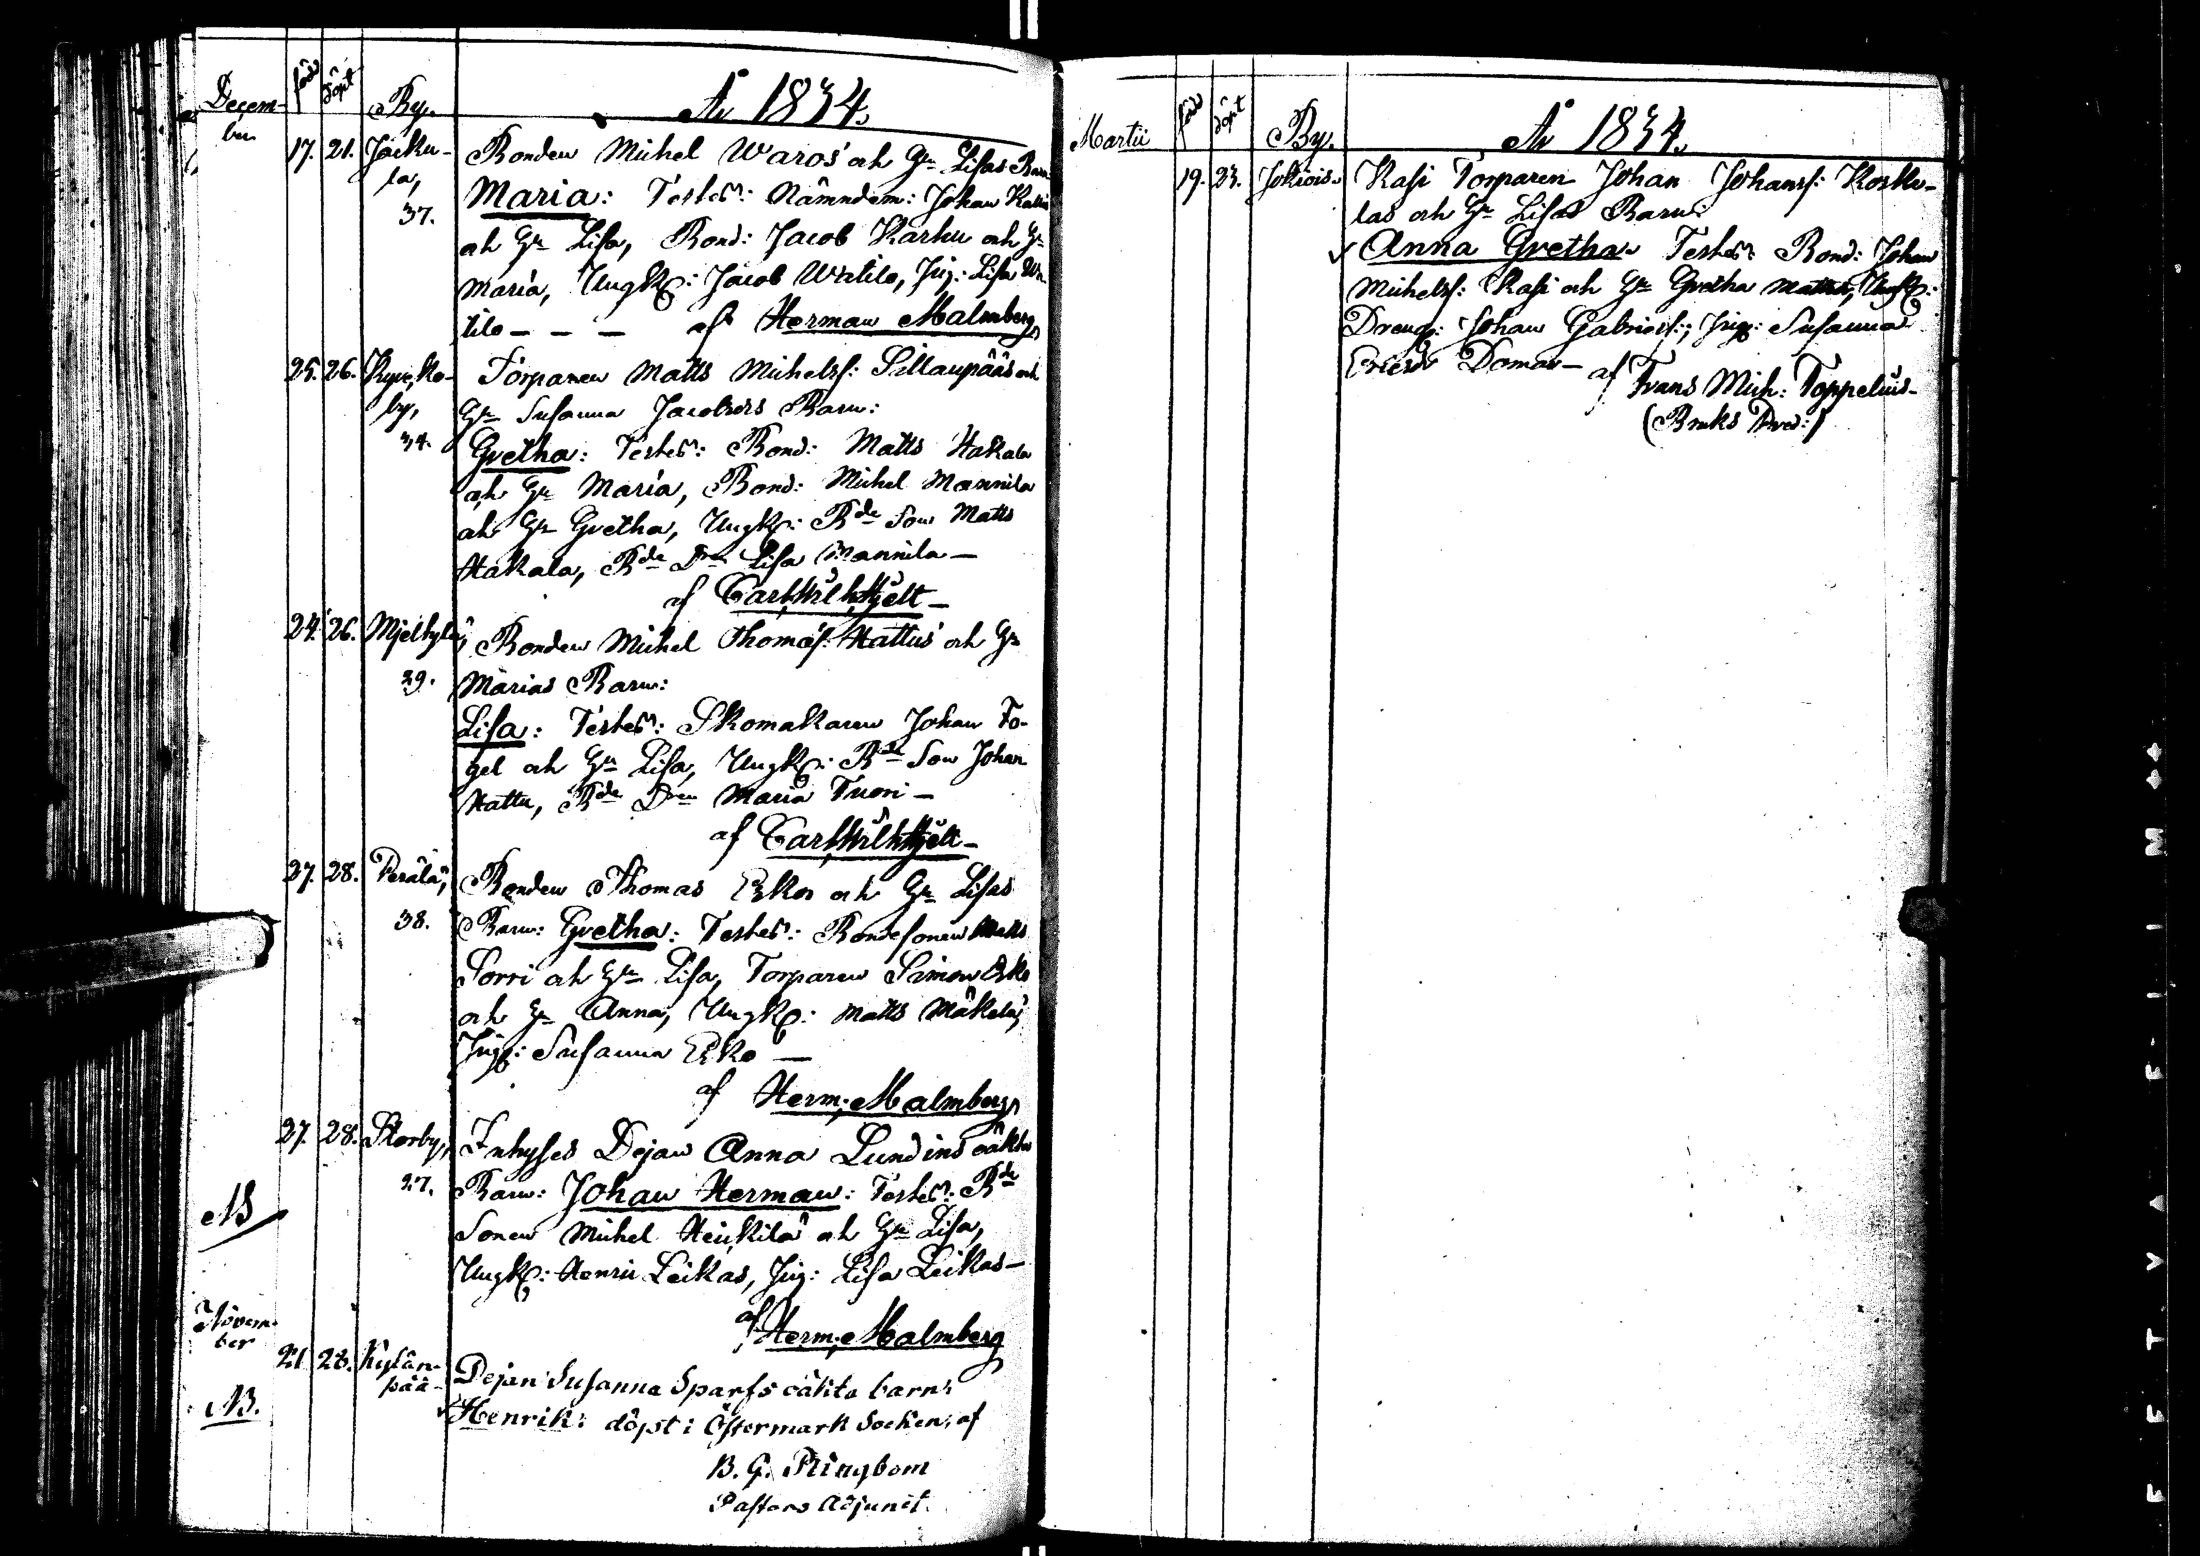 Decem-
ber
född
döpt
By.
År 1834.
17. 21. Jåcku- Bonden Michel Waros och Hu Lisas Barn
la, Maria: Testes: Nämndem: Johan
37. och Hu Lisa, Bond: Jacob Karhu och Hu
Maria, Ungk: Jacob Watilo, Pig: Lisa Wa-
tilo — — — af Herman Malmberg
25. 26. Torparen Matts Michelss: Sillanpääs och
by, Hu Susanna Jacobsdrs Barn:
34. Gretha: Testes: Bond: Matts Hakala
och Hu Maria, Bond: Michel Mannila
och Hu Gretha, Ungk: Bde Son Matts
Hakala, Bde Dr Lisa Mannila —
af Carl Wilh Hjelt —
24. 26. Mjethylä, Bonden Michel Thomass: Hattus och Hu
29. Marias Barn:
Lisa: Testes: Skomakaren Johan Fo-
gel och Hu Lisa, Ungk: Bde Son Johan
Hattu, Bde Dr Maria Tuori —
af Carl Wilh Hjelt —
27. 28. Perälä, Bonden Thomas Eskos och Hu Lisas
38. Barn: Gretha: Testes: Bondesonen Matts
Sorri och Hu Lisa, Torparen Simon Esko
och Hu Anna, Ungk: Matts Mäkelä,
Pig: Susanna Esko —
af Herm: Malmberg
27. 28. Storby, Inhyses Dejan Anna Lundins oäkta
27. Barn: Johan Herman: Testes: Bde
NB
Sonen Michel Heickilä och Hu Lisa,
Ungk: Henric Leikas, Pig: Lisa Leikas —
af Herm: Malmberg
Novem-
ber
21 23. Kylän- Dejan Susanna Sparfs oäkta barn:
pää-
NB. Henrik: döpt i Östermark Socken; af
B. G. Ringbom
Pastors Adjunct.
Martii
född
döpt
By.
År 1834.
19. 23. Jokiois. Kasi Torparen Johan Johanss: Koske-
las och Hu Lisas Barn:
Anna Gretha. Testes: Bond: Johan
Michelss: Kasi och Hu Gretha Ungk:
Dreng: Johan Gabrielss:, Pig: Susanna
Ericsdr Domar — af Frans Mich: Toppelius-
(Bruks Pred:)